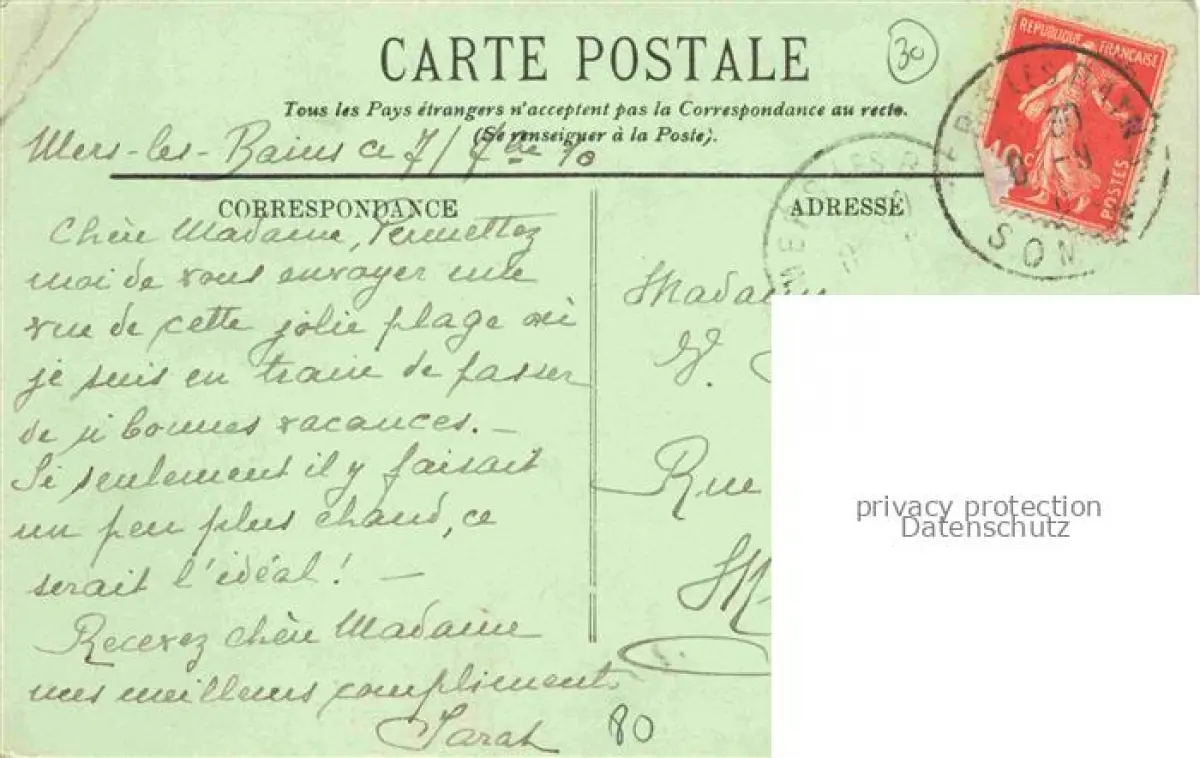 CARTE POSTALE
30
Tous les Pays étrangers n'acceptent pas la Correspondance au recto.
(Se renseigner à la Poste).
Mers-les-Bains ce 7/7bre 10
CORRESPONDANCE
Chère Madame, Permettez
moi de vous envoyer une
vue de cette jolie plage où
je suis en train de passer
de si bonnes vacances. —
Si seulement il y faisait
un peu plus chaud, ce
serait l'idéal! —
Recevez chère Madame
mes meilleurs compliments
Sarah
80
ADRESSE
Madame
Rue
REPUBLIQUE FRANÇAISE
10 c
POSTES
MERS LES B
LES BAIN
SOM
privacy protection
Datenschutz